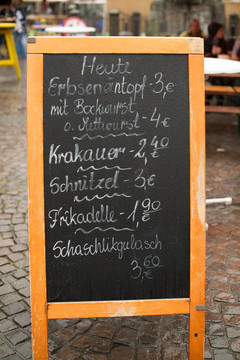 Heute
Erbseneintopf - 3,- €
mit Bockwurst
o. Mettwurst - 4 €
Krakauer - 2,40 €
Schnitzel - 3 €
Frikadelle - 1,90 €
Schaschlikgulasch
3,60 €